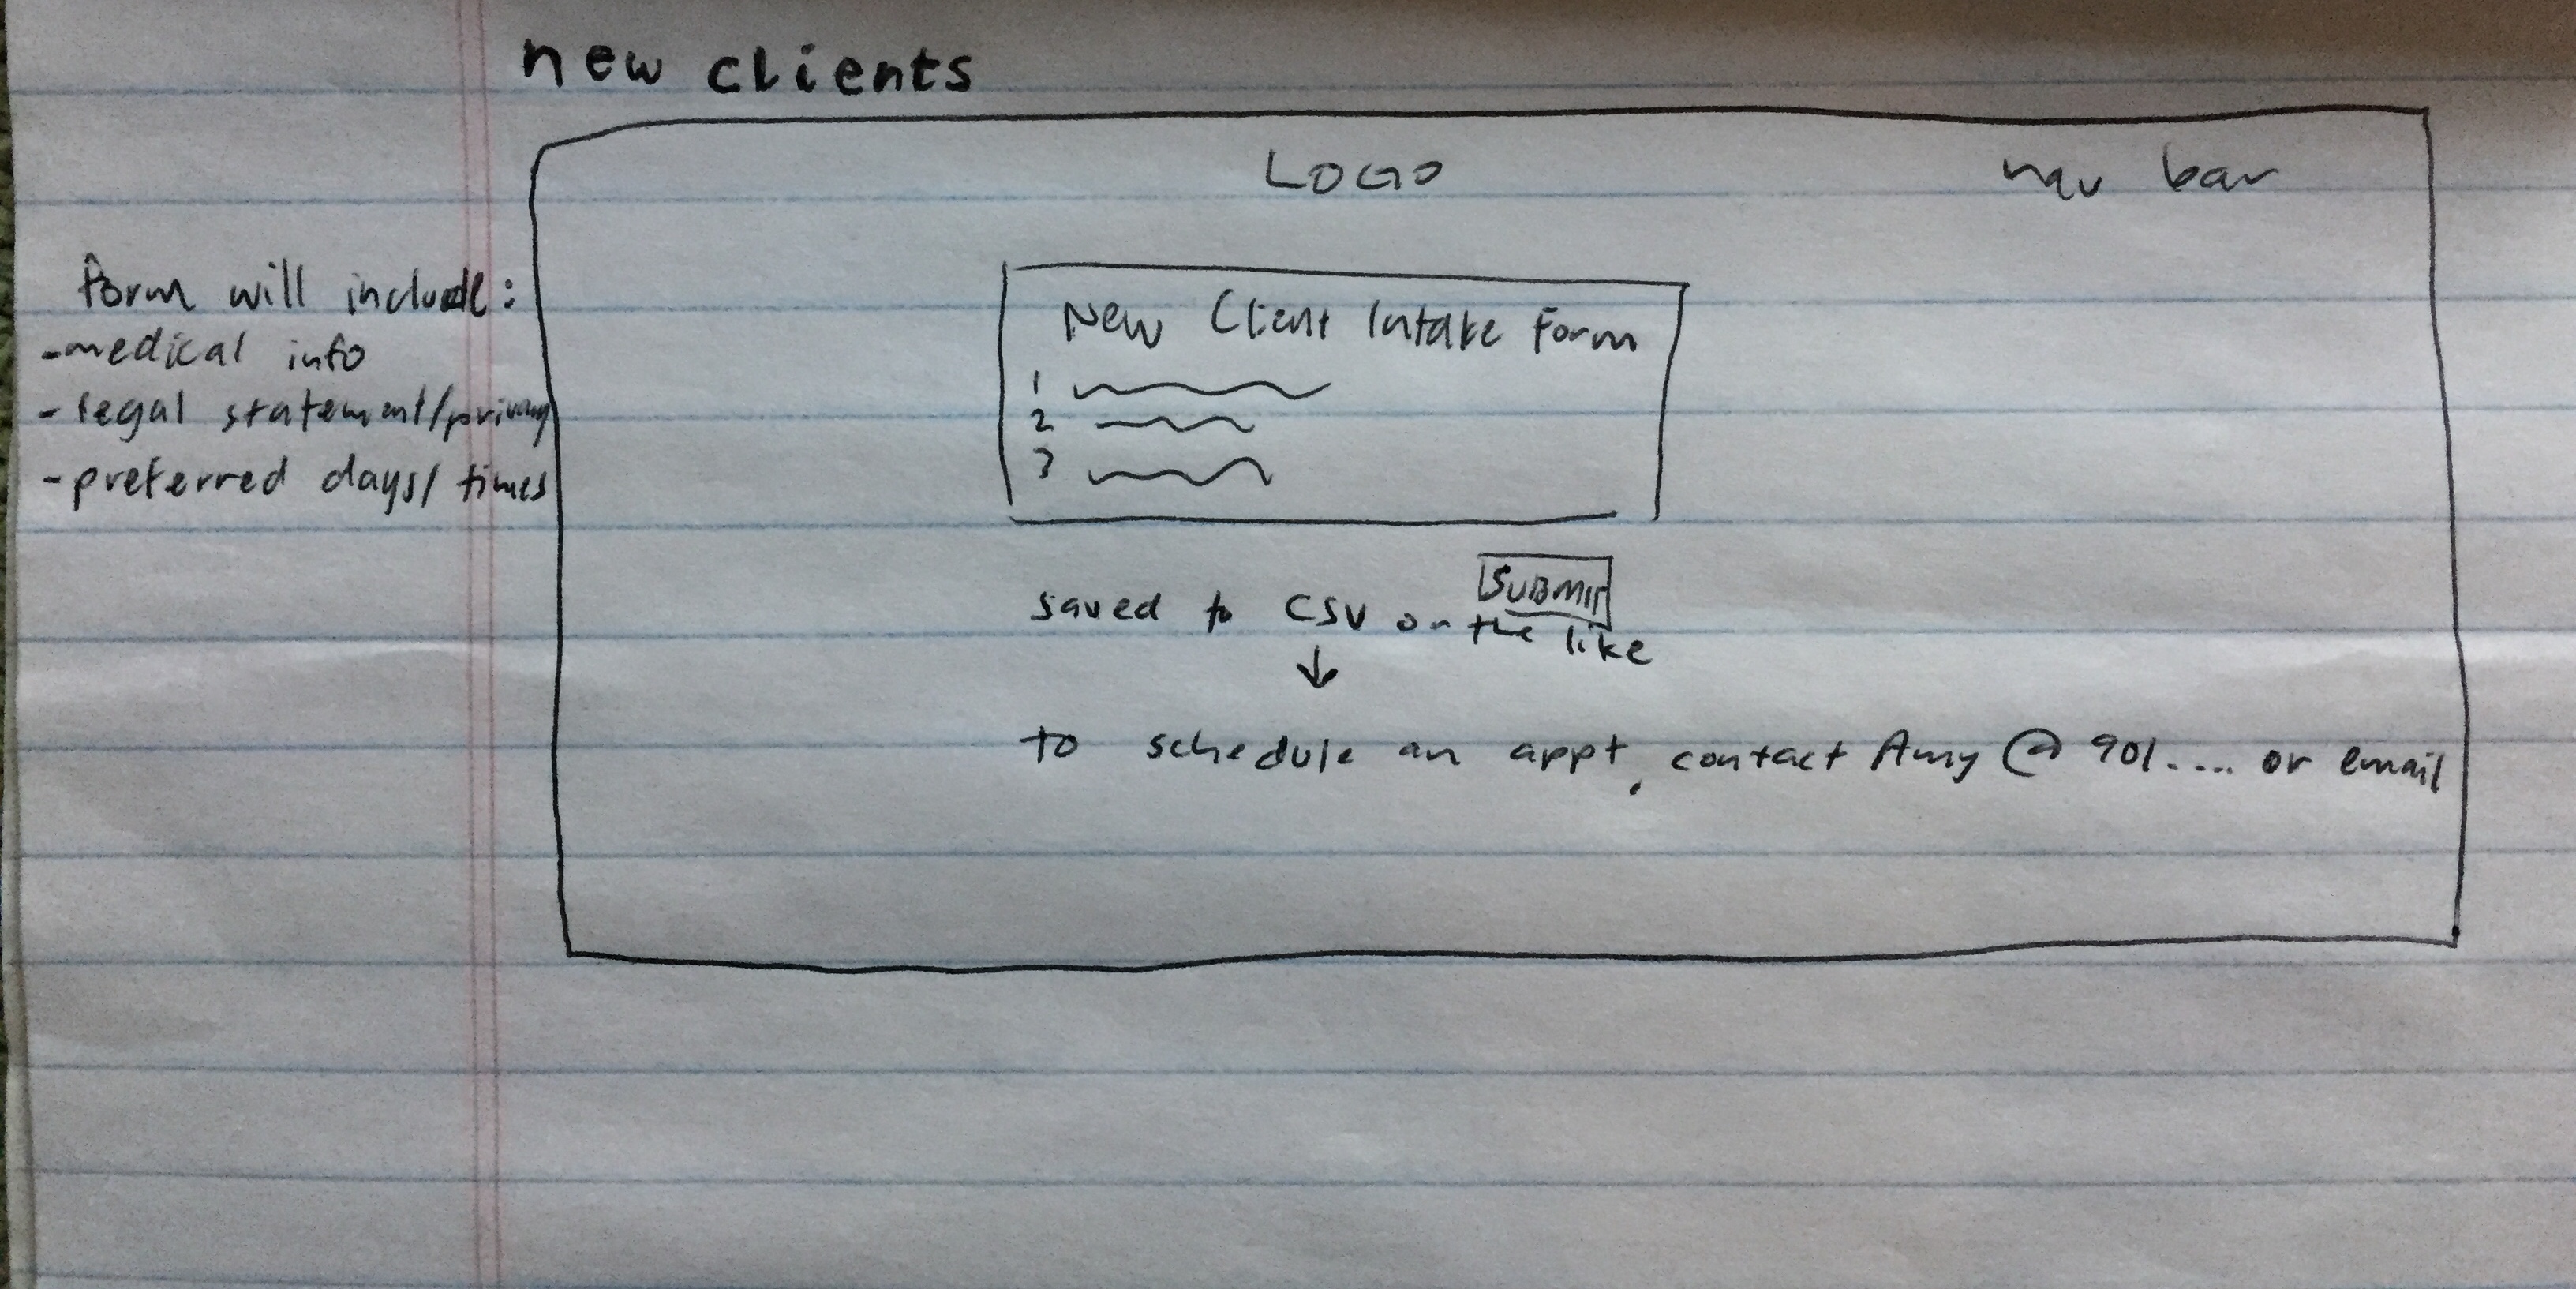 new clients
LOGO
nav bar
form will include:
-medical info
- legal statement/privacy
- preferred days/ times
New Client Intake Form
1
2
3
SUBMIT
saved to CSV or the like
↓
to schedule an appt, contact Amy @ 901.... or email